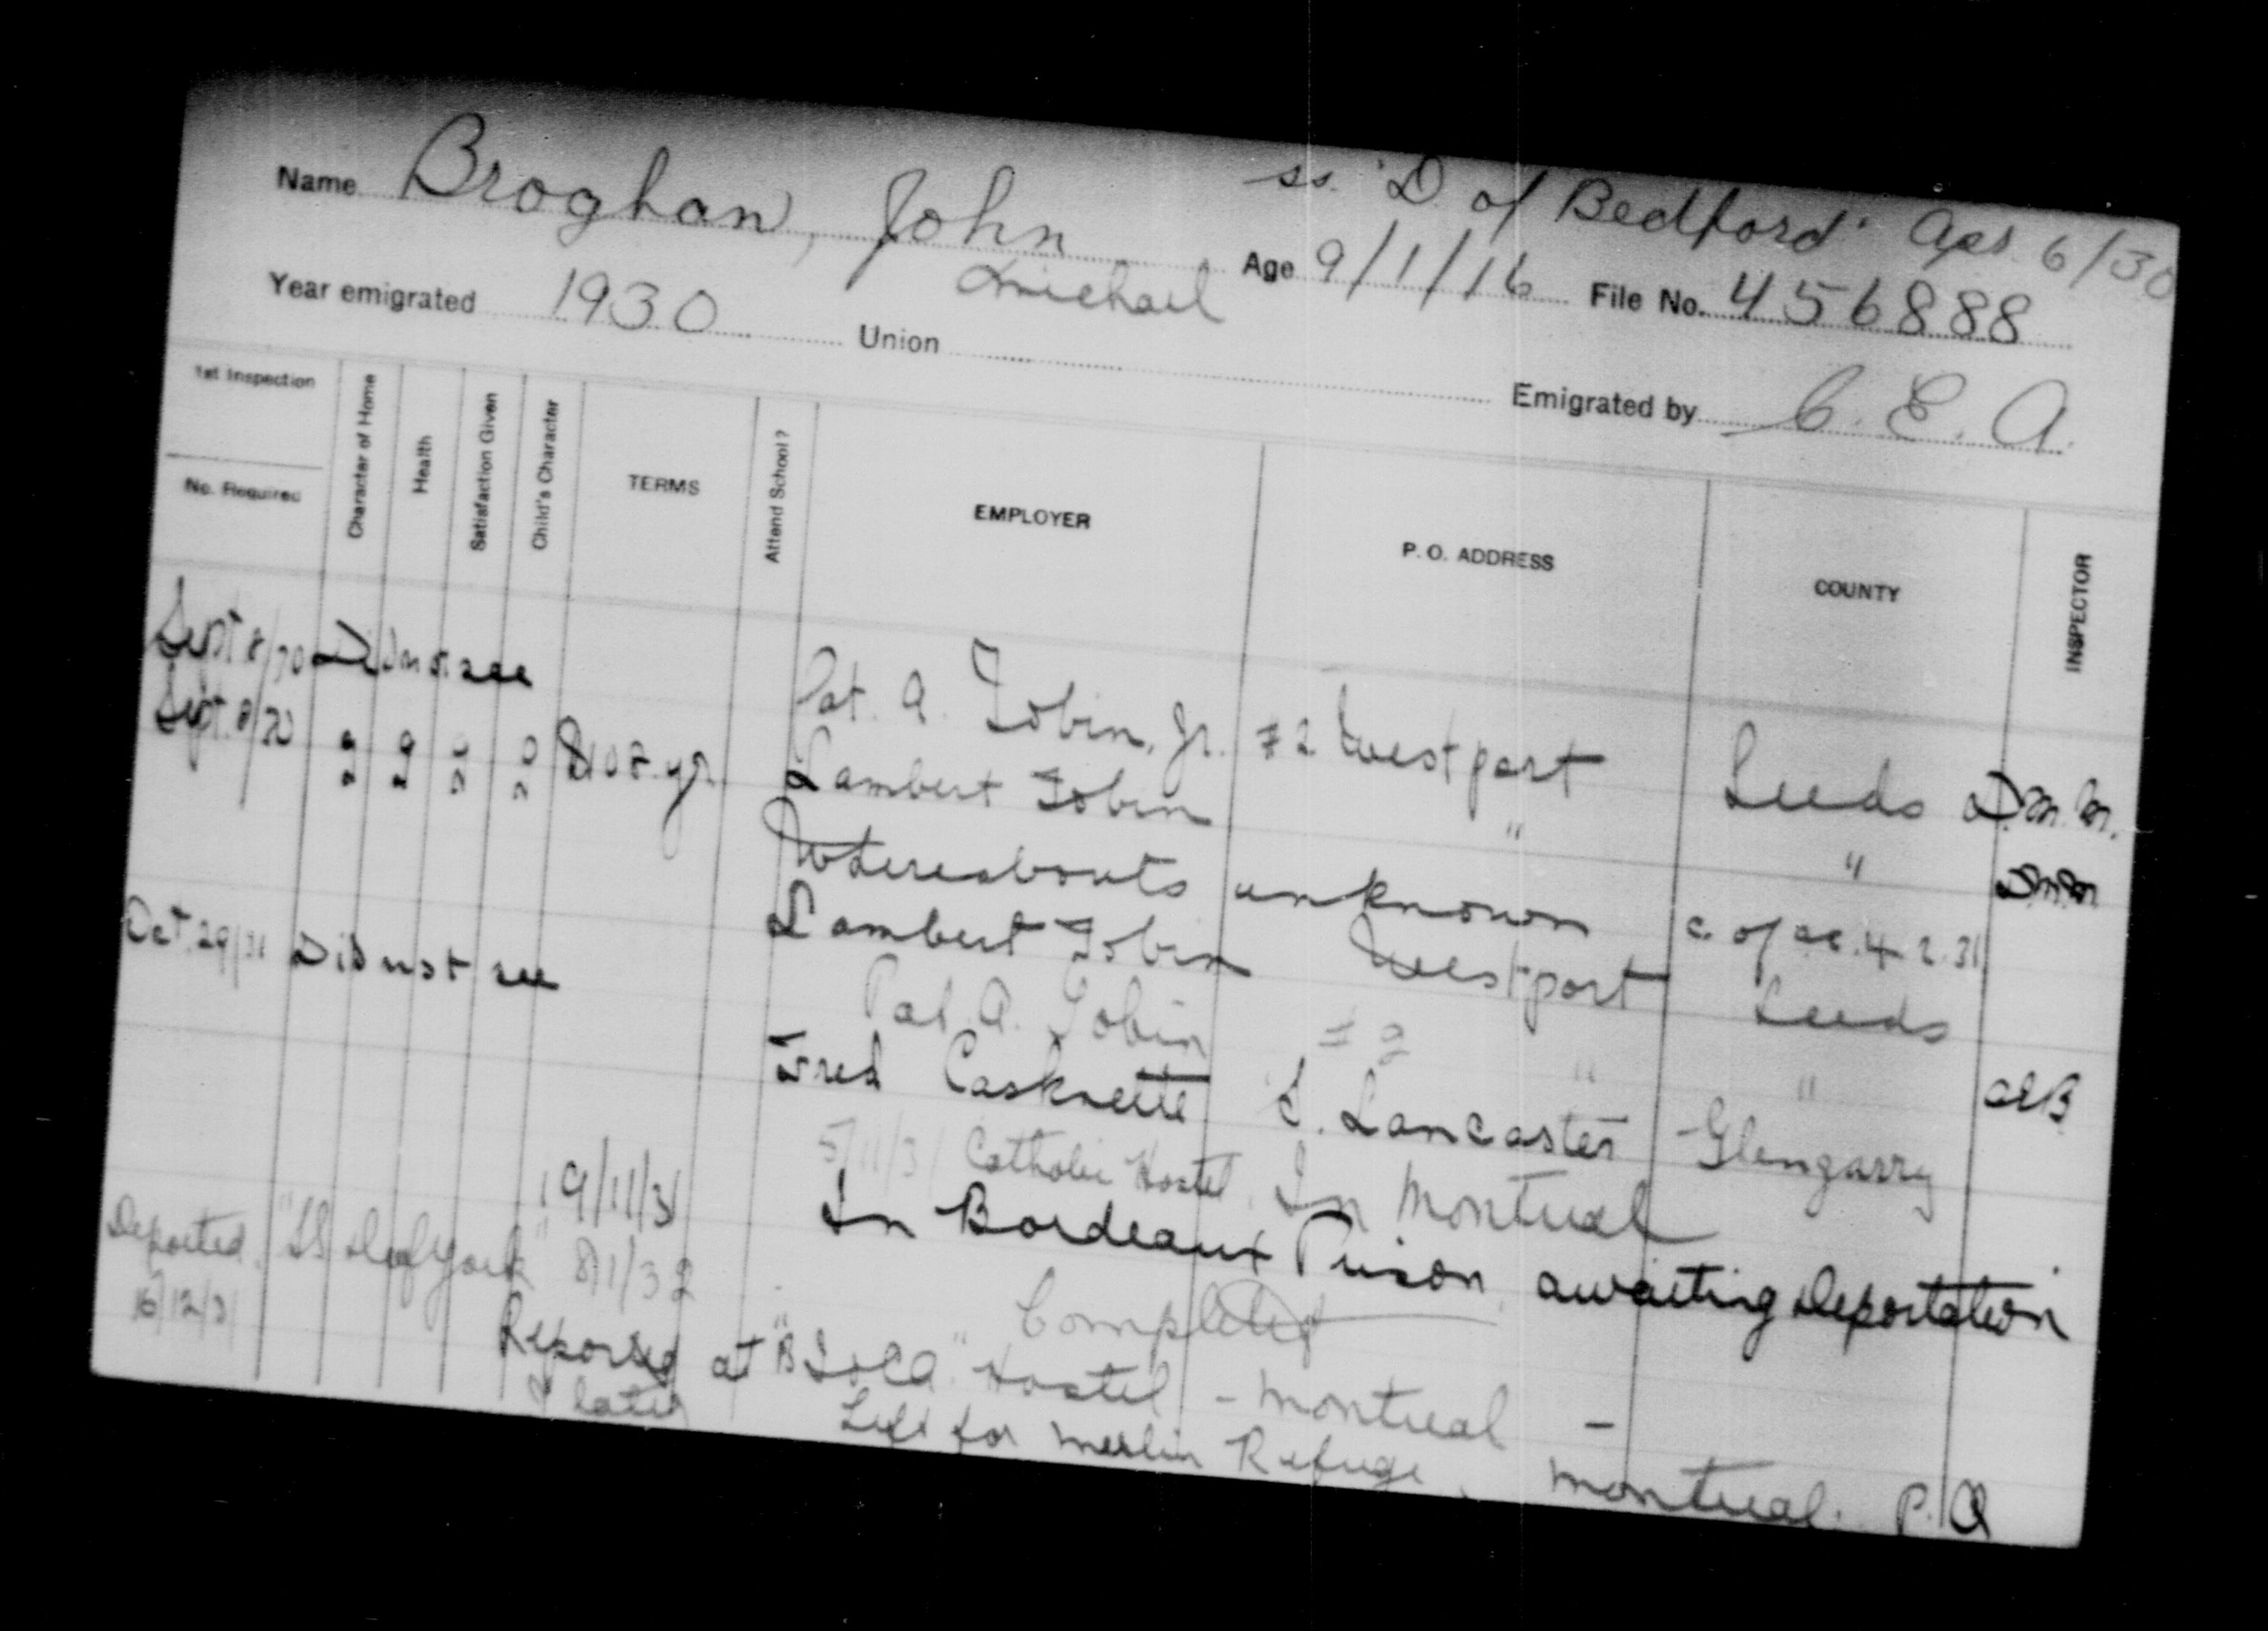 ss. "D of Bedford" Apr. 6/30
Name Broghan, John Michael Age 9/1/16 File No. 456888
Year emigrated 1930 Union Emigrated by C. E. A.
1st Inspection
No. Required
Character of Home
Health
Satisfaction Given
Child's Character
TERMS
Attend School?
EMPLOYER
P. O. ADDRESS
COUNTY
INSPECTOR
Sept 8/30 Did not see Pat. A. Tobin, Jr. #2 Westport Leeds D.M.M.
Sept. 8/30 $108. yr. Lambert Tobin " "
Whereabouts unknown c. of a. 4. 2. 31
Lambert Tobin Westport Leeds
Oct. 29/31 Did not see Pat. A. Tobin #2 " "
Fred Casknette S. Lancaster Glengarry
5/11/31 Catholic Hostel, In Montreal
19/11/31 In Bordeaux Prison, awaiting Deportation
Deported. "SS D of York" 8/1/32
Completed
16/12/31
Reported at Hostel - Montreal -
& later Left for Merlin Refuge, Montreal. P.Q